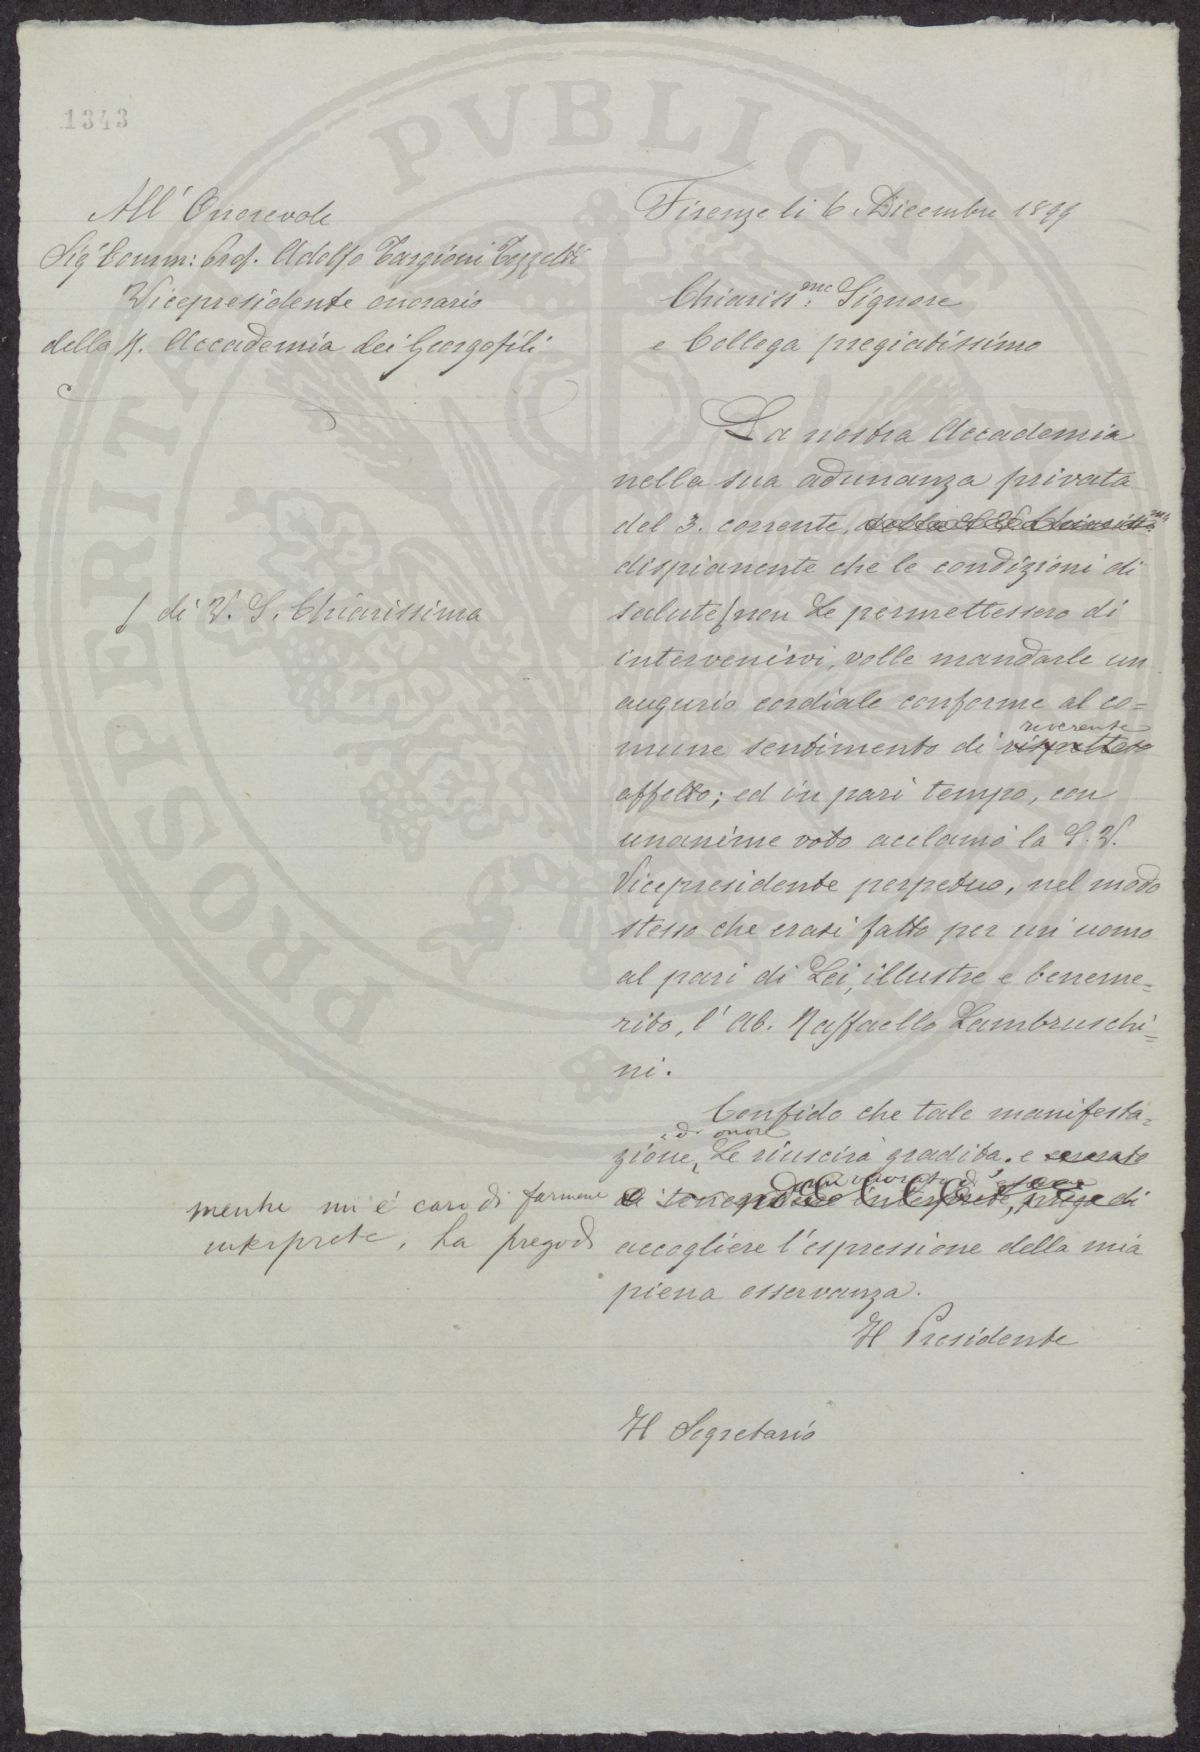 1343
All' Onorevole
Sig. Comm: Prof. Adolfo Targioni Tozzetti
Vicepresidente onorario
della R. Accademia dei Georgofili
Firenze li 6. Dicembre 1899
Chiariss.mo Signore
e Collega pregiatissimo
La nostra Accademia
nella sua adunanza privata
del 3. corrente,
dispiacente che le condizioni di
salute ∫ non Le permettessero di
∫ di V. S. Chiarissima
intervenirvi, volle mandarle un
augurio cordiale conforme al co=
reverente
mune sentimento di rispettoso
affetto; ed in pari tempo, con
unanime voto acclamò la S. V.
Vicepresidente perpetuo, nel modo
stesso che erasi fatto per un uomo
al pari di Lei, illustre e beneme=
rito, l'Ab. Raffaello Lambruschi=
ni.
Confido che tale manifesta=
di onore
zione, Le riuscirà gradita. e
interprete, prego di
mentre mi è caro di farmene
interprete, La prego di
accogliere l'espressione della mia
piena osservanza.
Il Presidente
Il Segretario
PROSPERITATI PVBLICAE